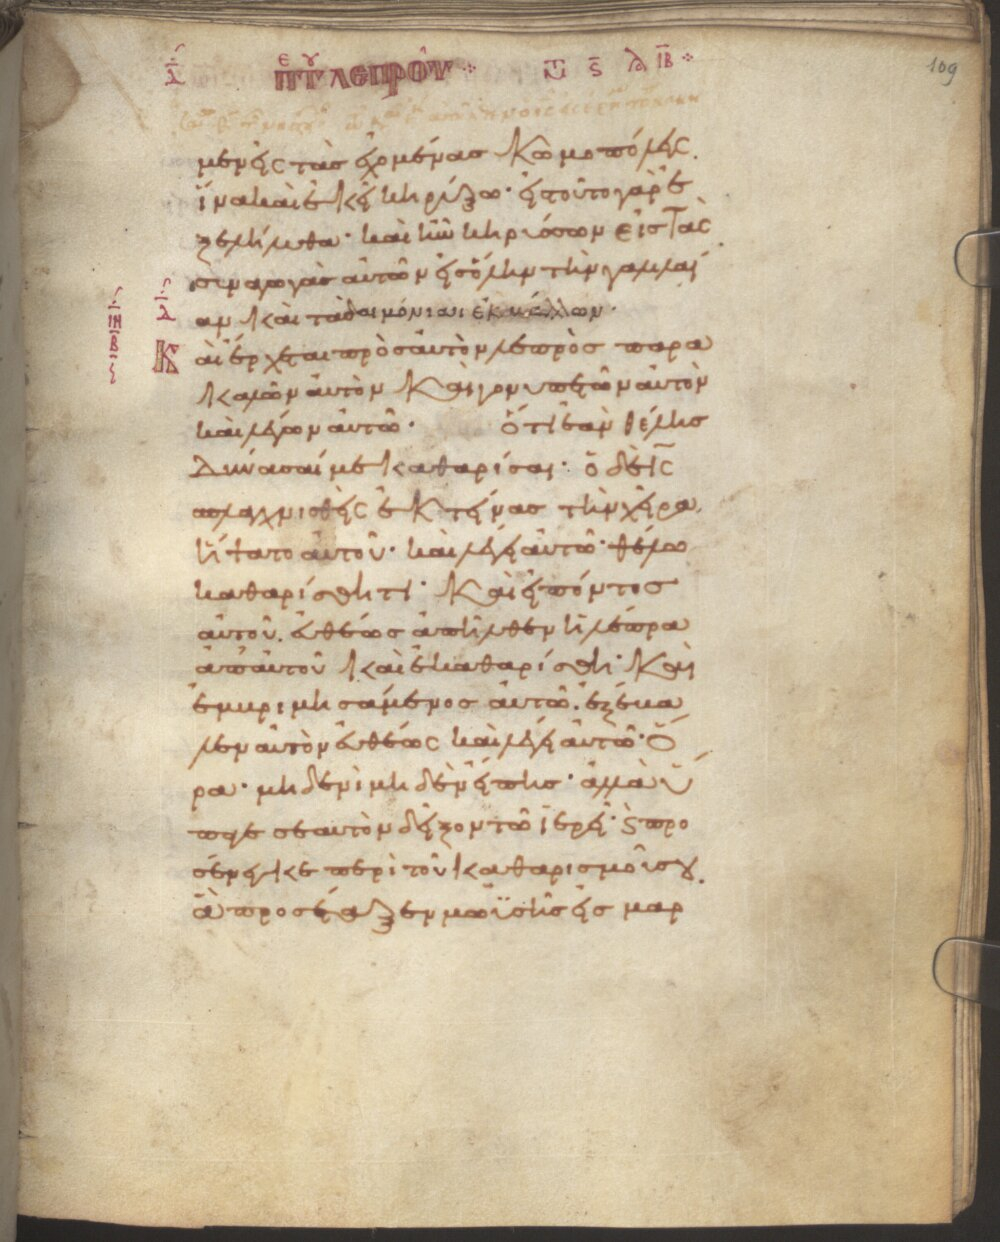 Δ ΠΕΡΙ ΤΟΥ ΛΕΠΡΟΥ Μτ ς Λ ΙΒ
109
μεν εἰς τὰσ ἐχομένασ κωμοπόλεις.
ἵνα καὶ ἐκεῖ κηρύξω· εἰς τοῦτο γὰρ ἐ
ξελήλυθα· καὶ ἦν κηρύσσων εἰσ τὰς
συναγωγὰσ αὐτῶν εἰσ ὅλην τὴν γαλιλαί
αν καὶ τὰ δαιμόνια ἐκβάλλων·
Καὶ ἔρχεται πρὸσ αὐτὸν λεπρὸσ παρα
καλῶν αὐτὸν καὶ γονυπετῶν αὐτὸν
καὶ λέγων αὐτῶ· ὅτι ἐὰν θέλησ
δύνασαί με καθαρίσαι· ὁ δὲ ις
σπλαγχνισθεὶς ἐκτείνασ τὴν χεῖρα
ἥψατο αὐτοῦ· καὶ λέγει αὐτῶ· θέλω
καθαρίσθητι· Καὶ εἰπόντοσ
αὐτοῦ. εὐθέωσ ἀπῆλθεν ἡ λέπρα
ἀπ' αὐτοῦ καὶ ἐκαθαρίσθη· Καὶ
ἐμβριμησάμενοσ αὐτῶ. ἐξέβα
λεν αὐτὸν εὐθέως καὶ λέγει αὐτῶ· Ὅ
ρα· μηδενὶ μηδὲν εἴπησ· ἀλλὰ ὕ
παγε σεαυτὸν δεῖξον τῶ ἱερεῖ· ϛ προ
σένεγκε περὶ τοῦ καθαρισμοῦ σου
ἃ προσέταξεν μωϋσῆσ εἰσ μαρ